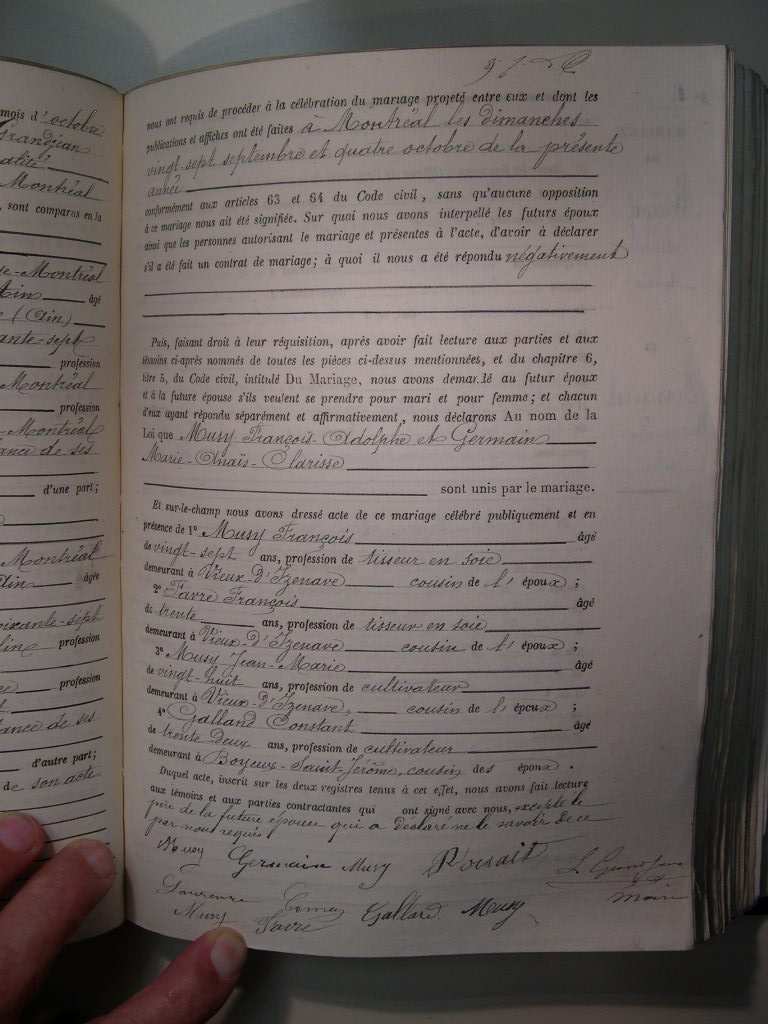 mois d'octobre
Grandjean
Montréal
, sont comparus en la
Montréal
Ain âgé
(Ain)
ante-sept
profession
Montréal
profession
Montréal
ance de ses
d'une part;
Montréal
Ain âgée
soixante-sept
profession
profession
ance de ses
d'autre part;
de son acte
nous ont requis de procéder à la célébration du mariage projeté entre eux et dont les
publications et affiches ont été faites à Montréal les dimanches
vingt-sept septembre et quatre octobre de la présente
année
conformément aux articles 63 et 64 du Code civil, sans qu'aucune opposition
à ce mariage nous ait été signifiée. Sur quoi nous avons interpellé les futurs époux
ainsi que les personnes autorisant le mariage et présentes à l'acte, d'avoir à déclarer
s'il a été fait un contrat de mariage; à quoi il nous a été répondu négativement
Puis, faisant droit à leur réquisition, après avoir fait lecture aux parties et aux
témoins ci-après nommés de toutes les pièces ci-dessus mentionnées, et du chapitre 6,
titre 5, du Code civil, intitulé Du Mariage, nous avons demandé au futur époux
et à la future épouse s'ils veulent se prendre pour mari et pour femme; et chacun
d'eux ayant répondu séparément et affirmativement, nous déclarons Au nom de la
Loi que Musy François-Adolphe et Germain
Marie-Anaïs-Clarisse
sont unis par le mariage.
Et sur-le-champ nous avons dressé acte de ce mariage célébré publiquement et en
présence de 1° Musy François âgé
de vingt-sept ans, profession de tisseur en soie
demeurant à Vieux-D'Izenave cousin de l' époux;
2° Favre François âgé
de trente ans, profession de tisseur en soie
demeurant à Vieux-D'Izenave cousin de l' époux;
3° Musy Jean-Marie âgé
de vingt-huit ans, profession de cultivateur
demeurant à Vieux-D'Izenave, cousin de l' époux;
4° Galland Constant âgé
de trente deux ans, profession de cultivateur
demeurant à Boyeux-Saint-Jérôme, cousin des époux.
Duquel acte, inscrit sur les deux registres tenus à cet effet, nous avons fait lecture
aux témoins et aux parties contractantes qui ont signé avec nous, excepté le
père de la future épouse qui a déclaré ne le savoir de ce
par nous requis
Musy Germain Musy
maire
Musy Favre Galland Musy